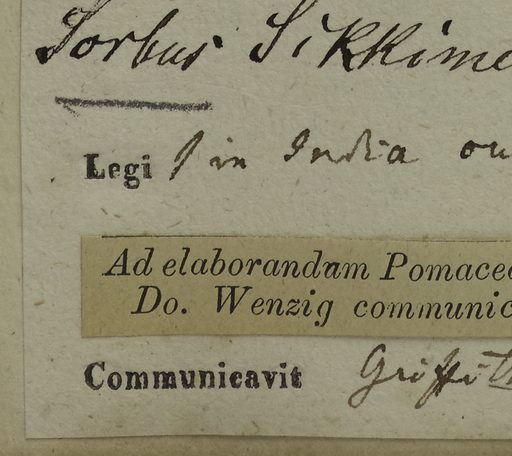 Sorbus Sikkime
Legi in India ou
Ad elaborandam Pomaceo
Do. Wenzig communic
Communicavit Griffith